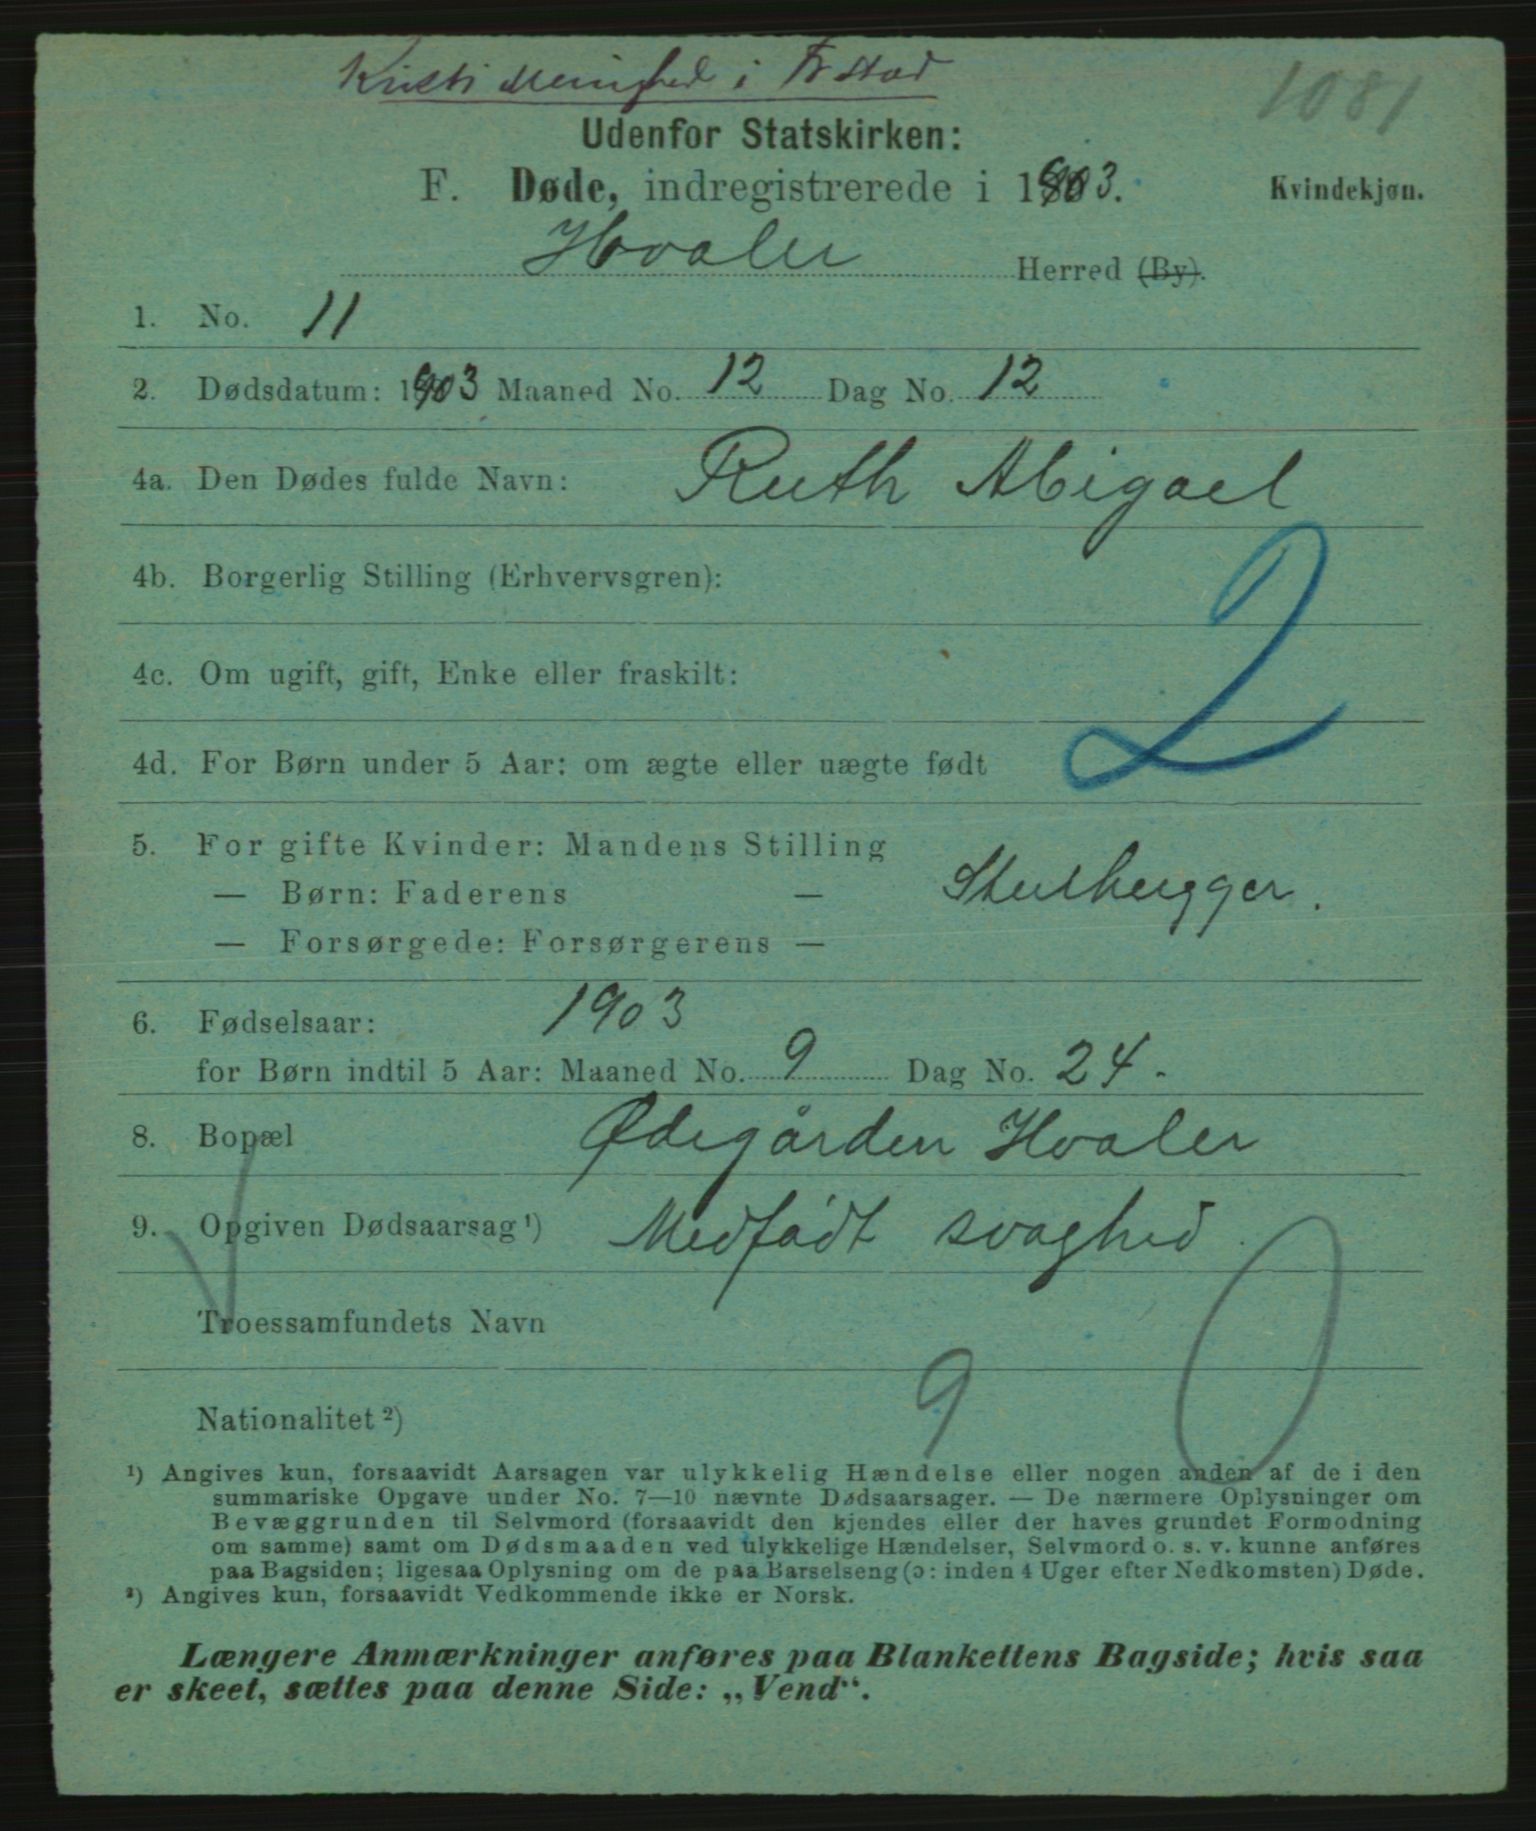 Kristi Menighed i Fr.stad
1081
Udenfor Statskirken:
F. Døde, indregistrerede i 1903. Kvindekjøn.
Hvaler Herred (By).
1. No. 11
2. Dødsdatum: 1903 Maaned No. 12 Dag No. 12
4a. Den Dødes fulde Navn: Ruth Abigael
4b. Borgerlig Stilling (Erhvervsgren):
2
4c. Om ugift, gift, Enke eller fraskilt:
4d. For Børn under 5 Aar: om ægte eller uægte født
5. For gifte Kvinder: Mandens Stilling
— Børn: Faderens — Stenhugger.
— Forsørgede: Forsørgerens —
6. Fødselsaar: 1903
for Børn indtil 5 Aar: Maaned No. 9 Dag No. 24.
8. Bopæl Ødegården Hvaler
9. Opgiven Dødsaarsag ¹) Medfødt svaghed.
Troessamfundets Navn
9 0
Nationalitet ²)
¹) Angives kun, forsaavidt Aarsagen var ulykkelig Hændelse eller nogen anden af de i den
summariske Opgave under No. 7—10 nævnte Dødsaarsager. — De nærmere Oplysninger om
Bevæggrunden til Selvmord (forsaavidt den kjendes eller der haves grundet Formodning
om samme) samt om Dødsmaaden ved ulykkelige Hændelser, Selvmord o. s. v. kunne anføres
paa Bagsiden; ligesaa Oplysning om de paa Barselseng (ɔ: inden 4 Uger efter Nedkomsten) Døde.
²) Angives kun, forsaavidt Vedkommende ikke er Norsk.
Længere Anmærkninger anføres paa Blankettens Bagside; hvis saa
er skeet, sættes paa denne Side: „Vend“.